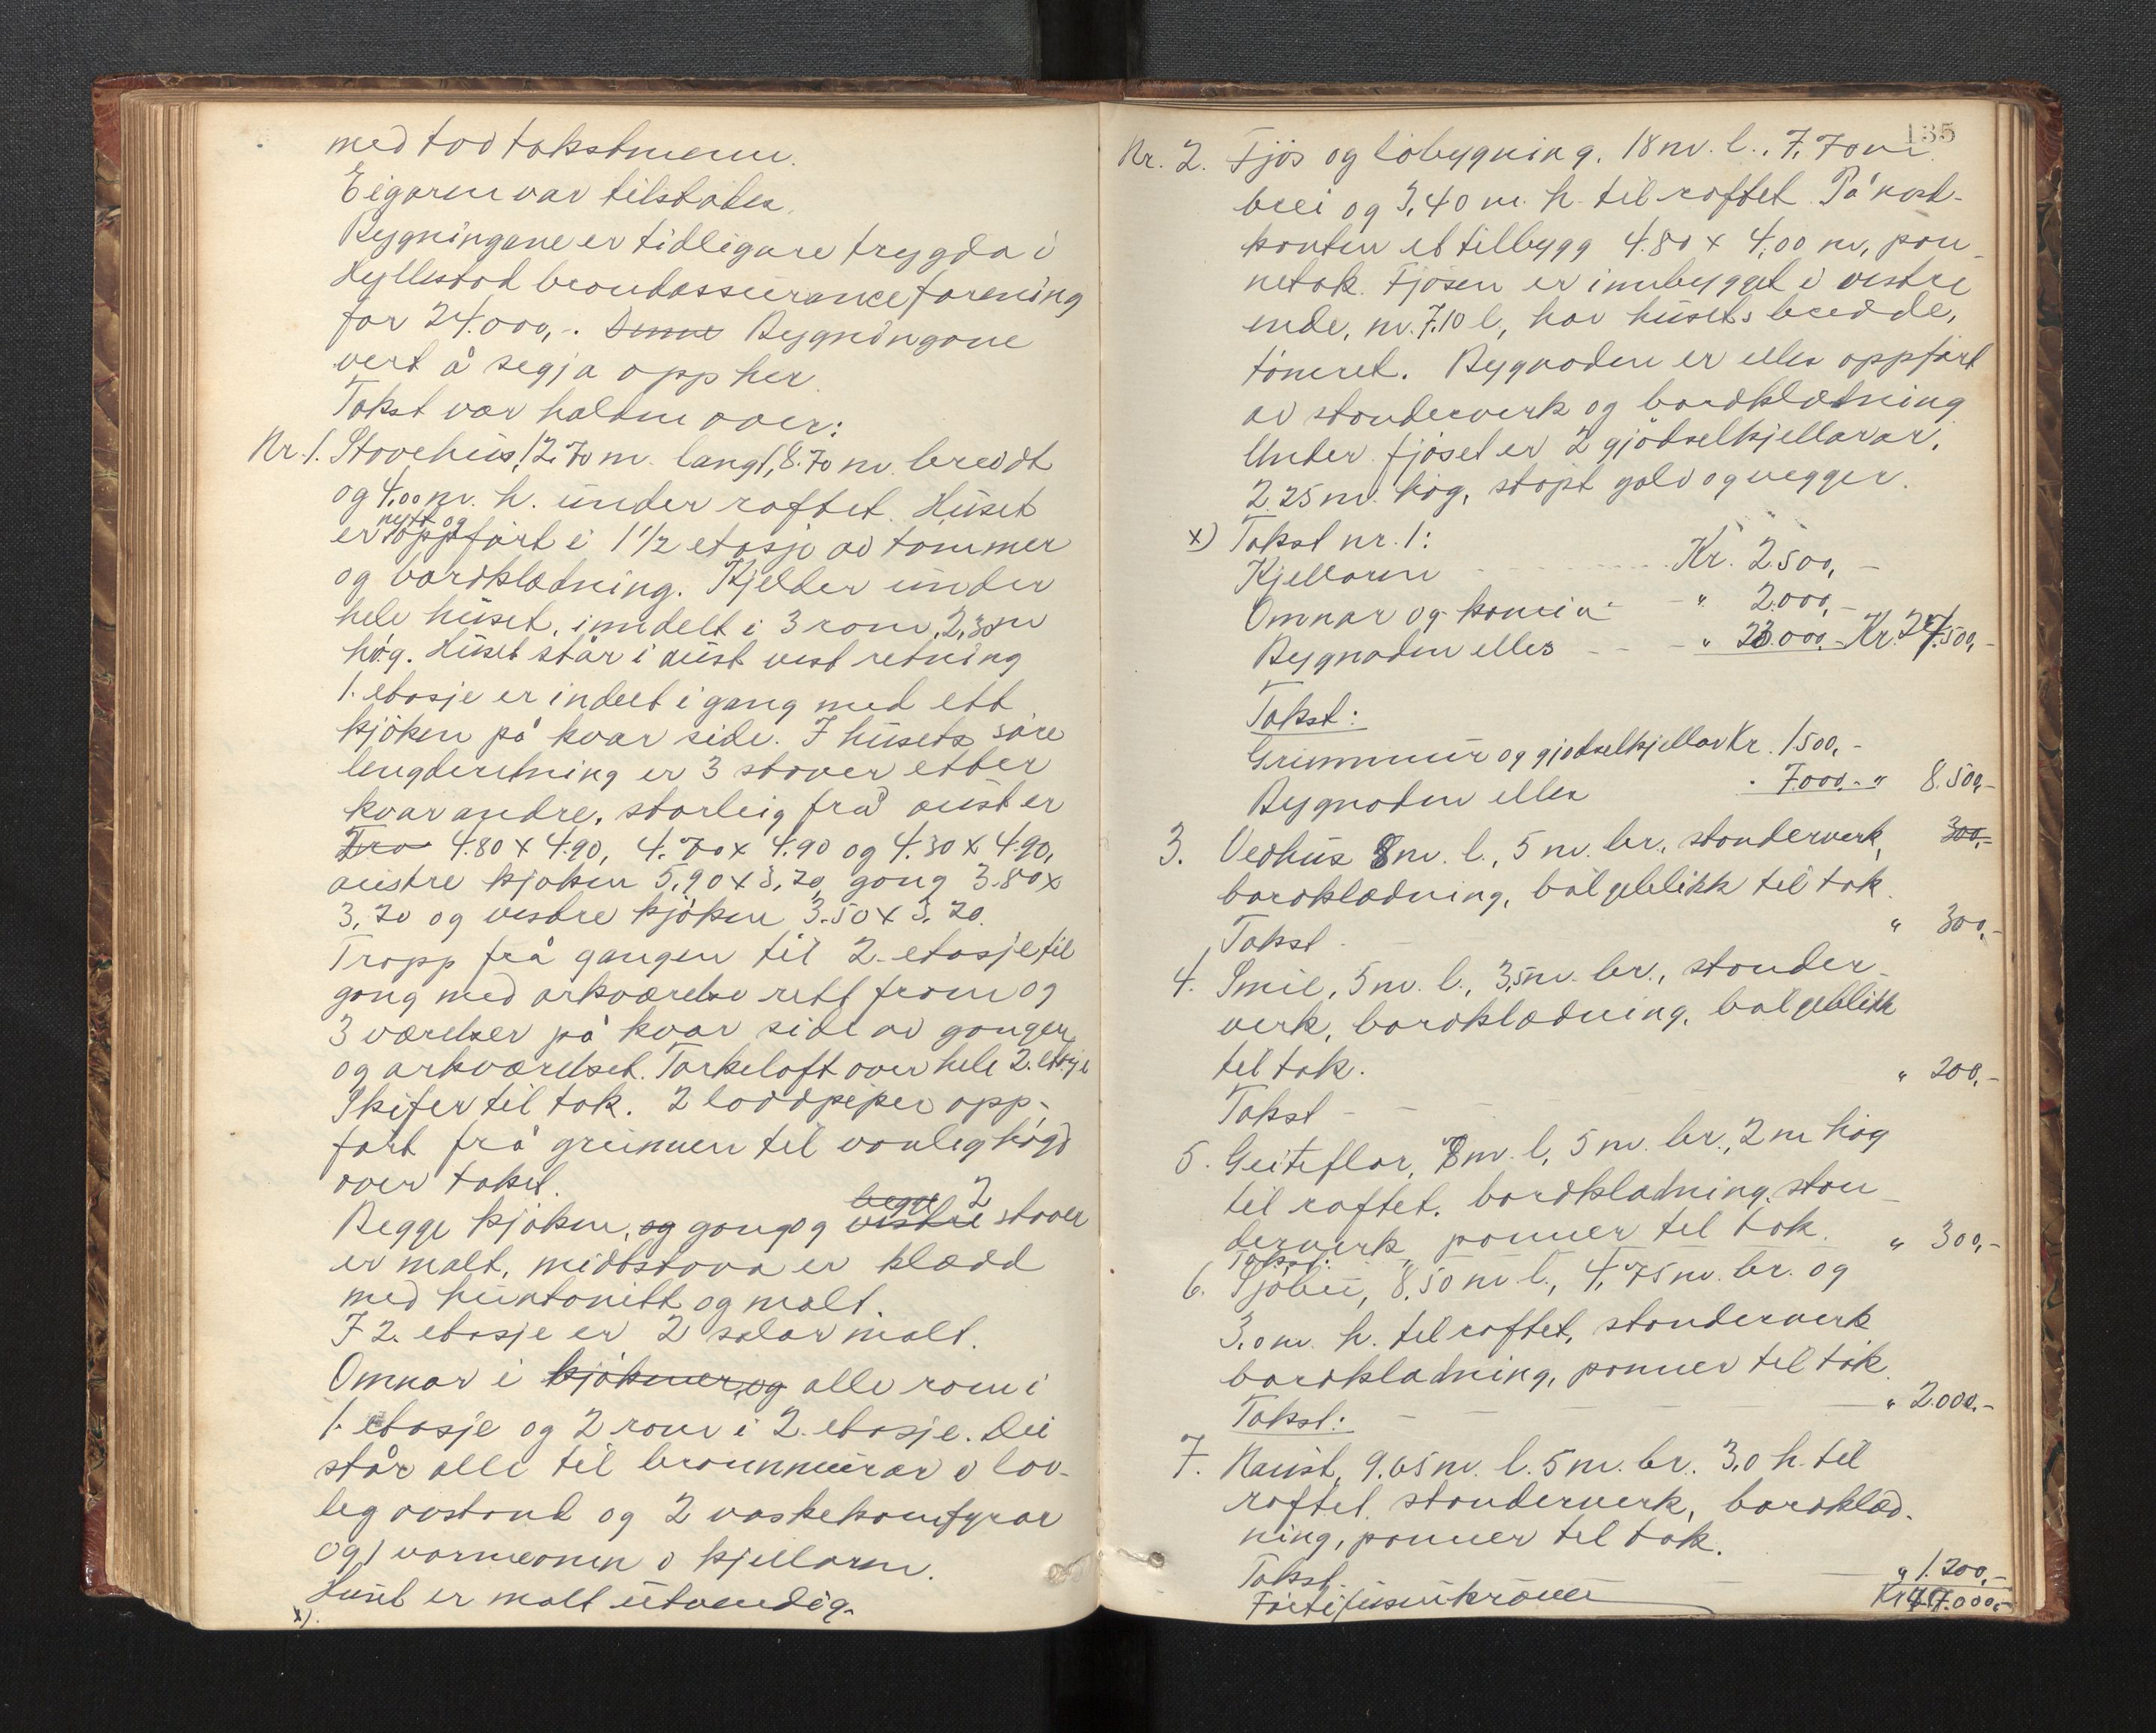 med tvo takstmenn.
Eigaren var tilstades.
Bygningane er tidligare trygda i
Hyllestad brandassuranceforening
for 24.000,-. Denne Bygningane
vert å segja opp her.
Takst var halden over:
Nr. 1. Stovehus, 12.70 m. langt, 8.70 m. breidt
og 4,00 m. h. under raftet. Huset
er nytt og oppført i 1 1/2 etasje av tømmer
og bordklædning. Kjelder under
hele huset, inndelt i 3 rom, 2,30 m
høg. Huset står i aust vest retning
1. etasje er indelt i gang med ett
kjøken på kvar side. I husets søre
lengderetning er 3 stover etter
kvarandre, storleig frå aust er
4.80 x 4.90, 4.70 x 4.90 og 4.30 x 4.90,
austre kjøken 5,90 x 3,20, gang 3.80 x
3,20 og vestre kjøken 3.50 x 3.20.
Tropp frå gangen til 2. etasje til
gang med arkværelse rett fram og
3 værelser på kvar side av gangen
og arkværelset. Tørkeloft over hele 2. etasje
Skifer til tak. 2 loddpiper opp-
ført frå grunnen til vanleg høgd
over taket.
Begge kjøken, og gang og vestre begge 2 stover
er malt, midtstova er klædd
med huntonitt og malt.
I 2. etasje er 2 salar malt.
Omnar i kjøkner, og alle rom i
1. etasje og 2 rom i 2. etasje. Dei
står alle til brannmurar i lov-
leg avstand og 2 vaskekomfyrar
og 1 varmeomn i kjellaren.
Huset er malt utvendig.
x).
135
Nr. 2. Fjøs og løbygning. 18 m. l., 7,70 m
brei og 3,40 m. h. til raftet. På nord-
kanten et tilbygg 4.80 x 4,00 m, pan-
netak. Fjøsen er innbygget i vestre
ende, m. 7.10 l, har husets bredde,
tømret. Bygnaden er elles oppført
av stenderverk og bordklædning.
Under fjøset er 2 gjødselkjellarar,
2.25 m. høg, støpt golv og vegger.
x) Takst nr. 1:
Kjellaren - - - Kr. 2.500,-
Omnar og komin - - " 2.000,-
Bygnaden elles - - - " 23.000,- Kr. 27.500,-
Takst:
Grunnmur og gjødselkjellar Kr. 1500,-
Bygnaden elles " 7.000,- " 8.500,-
3. Vedhus 8 m. l., 5 m. br., stenderverk, 300,-
bordklædning, bølgeblikk til tak.
Takst - " 300,-
4. Smie, 5 m. l., 3,5 m. br., stender-
verk, bordklædning, bølgeblikk
til tak.
Takst - - - - " 200,-
5. Geiteflor, 8 m. l, 5 m. br., 2 m høg
til raftet, bordklædning, sten-
derverk, panner til tak. " 300,-
Takst:
6. Sjøbu, 8.50 m l., 4,75 m. br. og
3.0 m. h. til raftet, stenderverk
bordklædning, panner til tak.
Takst: - - - - " 2.000,-
7. Naust, 9.65 m. l. 5 m. br. 3,0 h. til
raftet, stenderverk, bordklæd-
ning, panner til tak.
Takst. - " 1.200,-
Førtitusenkroner Kr 40.000,-